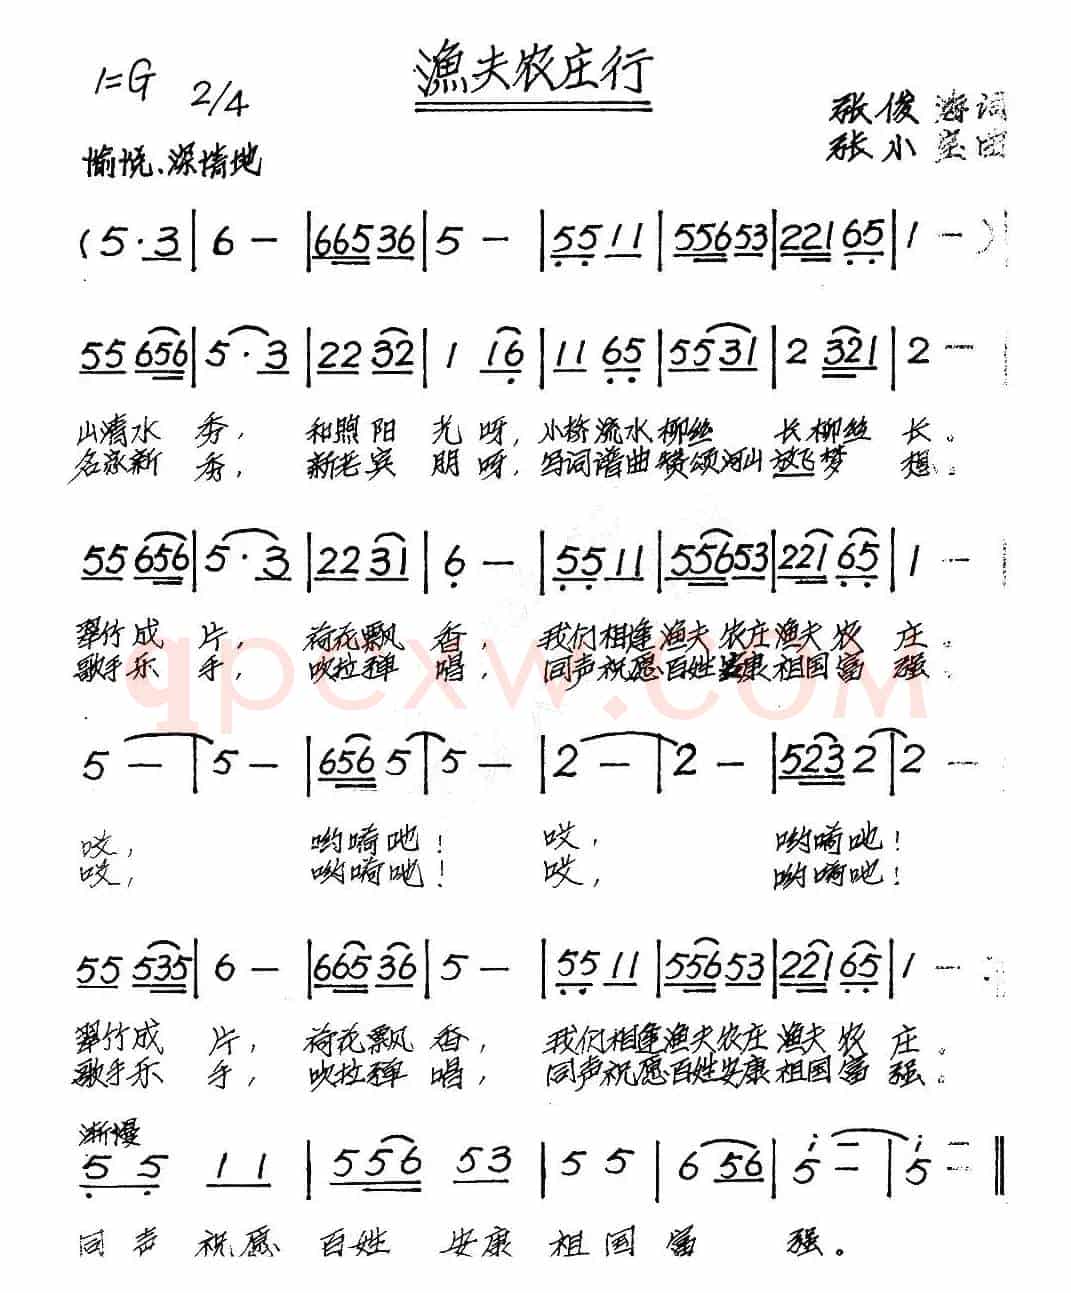 漁夫农庄行
1=G 2/4
张俊涛词
张小宝曲
愉悦、深情地
(5·3|6－|66536|5－|5511|55653|22165|1－)
55656|5·3|2232|1 16|1165|5531|2 321|2－
山清水秀，和照阳光呀，小桥流水柳丝长柳丝长。
名家新秀，新老宾朋呀，写词谱曲赞颂河山放飞梦想。
55656|5·3|2231|6－|5511|55653|22165|1－
翠竹成片，荷花飘香，我们相逢渔夫农庄渔夫农庄。
歌手乐手，吹拉弹唱，同声祝愿百姓安康祖国富强。
qpcxw.COM
5－|5－|6565|5－|2－|2－|5232|2－
哎，哟嗬吔！哎，哟嗬吔！
哎，哟嗬吔！哎，哟嗬吔！
55535|6－|66536|5－|5511|55653|22165|1－
翠竹成片，荷花飘香，我们相逢渔夫农庄渔夫农庄。
歌手乐手，吹拉弹唱，同声祝愿百姓安康祖国富强。
渐慢
55 11|556 53|5 5|6 56|i5－|i5－‖
同声祝愿百姓安康祖国富强。